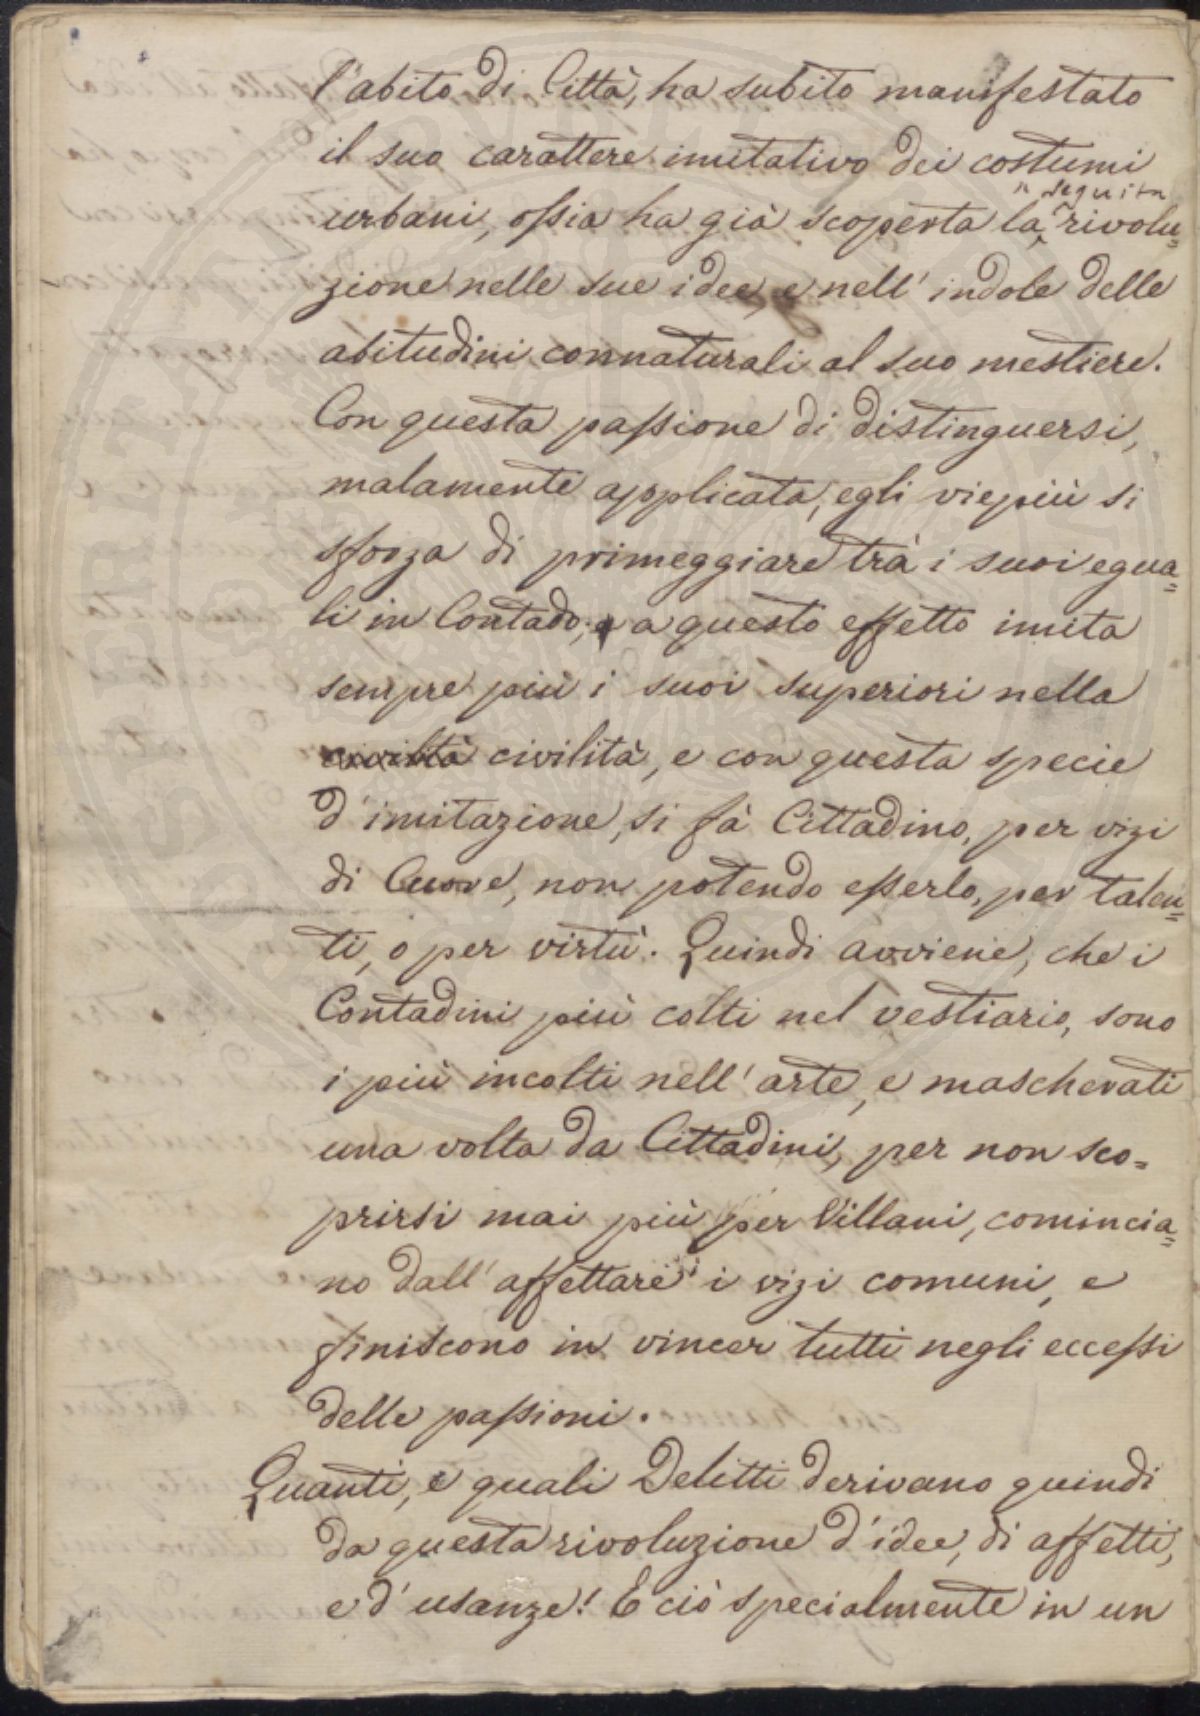 l'abito di Città, ha subito manifestato
il suo carattere imitativo dei costumi
seguita
urbani, ossia ha già scoperta la rivolu=
zione nelle sue idee, e nell' indole delle
abitudini connaturali al suo mestiere.
Con questa passione di distinguersi,
malamente applicata, egli viepiù si
sforza di primeggiare trà i suoi egua=
li in Contado; e a questo effetto imita
sempre più i suoi superiori nella
civiltà civilità, e con questa specie
d'imitazione, si fà Cittadino, per vizi
di Cuore, non potendo esserlo, per talen=
ti, o per virtù. Quindi avviene, che i
Contadini più colti nel vestiario, sono
i più incolti nell' arte, e mascherati
una volta da Cittadini, per non sco=
prirsi mai più per Villani, comincia=
no dall' affettare i vizi comuni, e
finiscono in vincer tutti negli eccessi
delle passioni.
Quanti, e quali Delitti derivano quindi
da questa rivoluzione d'idee, di affetti,
e d' usanze! E ciò specialmente in un